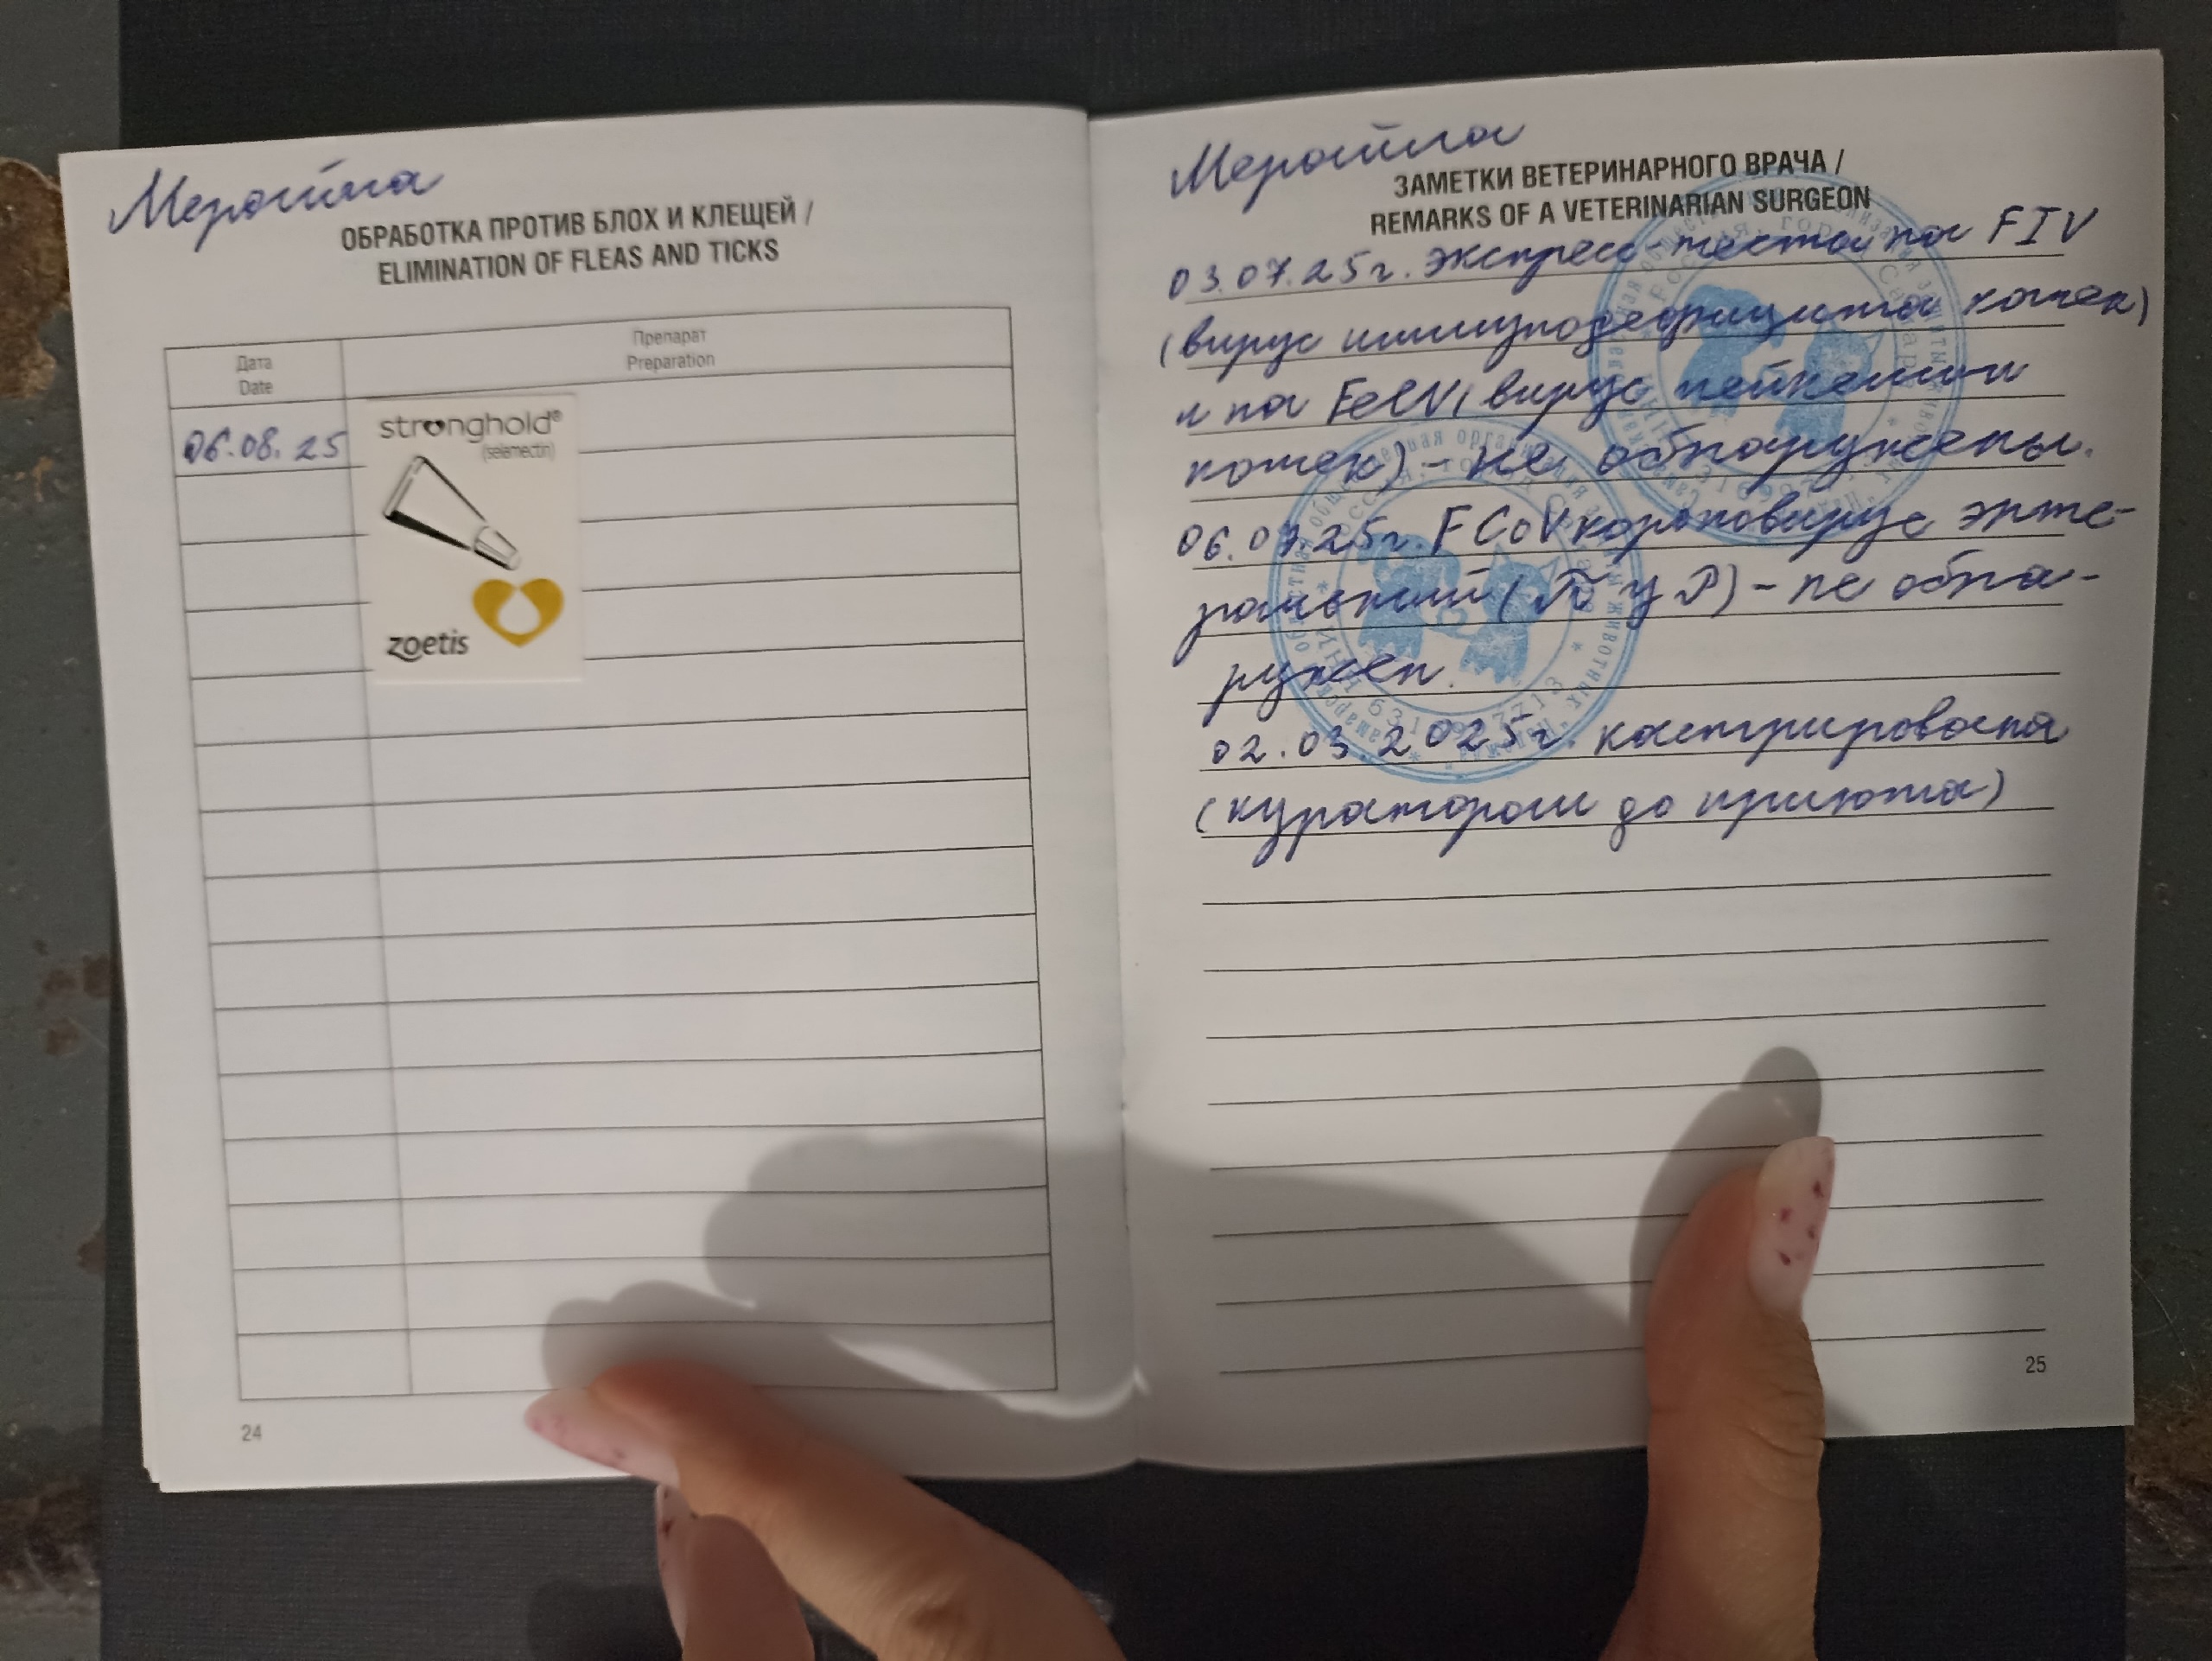 Меройпа
ОБРАБОТКА ПРОТИВ БЛОХ И КЛЕЩЕЙ /
ELIMINATION OF FLEAS AND TICKS
Дата
Date
Препарат
Preparation
06.08.25
stronghold®
(selamectin)
zoetis
24
ЗАМЕТКИ ВЕТЕРИНАРНОГО ВРАЧА /
REMARKS OF A VETERINARIAN SURGEON
03.07.25г. экспресс-тесты на FIV
(вирус иммунодефицита кошек)
и на FeLV (вирус лейкемии
кошек) - не обнаружены.
06.07.25г. FCoV коронавирус энте-
ральный (ПЦР) - не обна-
ружен.
02.03.2025г. кастрирована
(куратором до приюта)
25